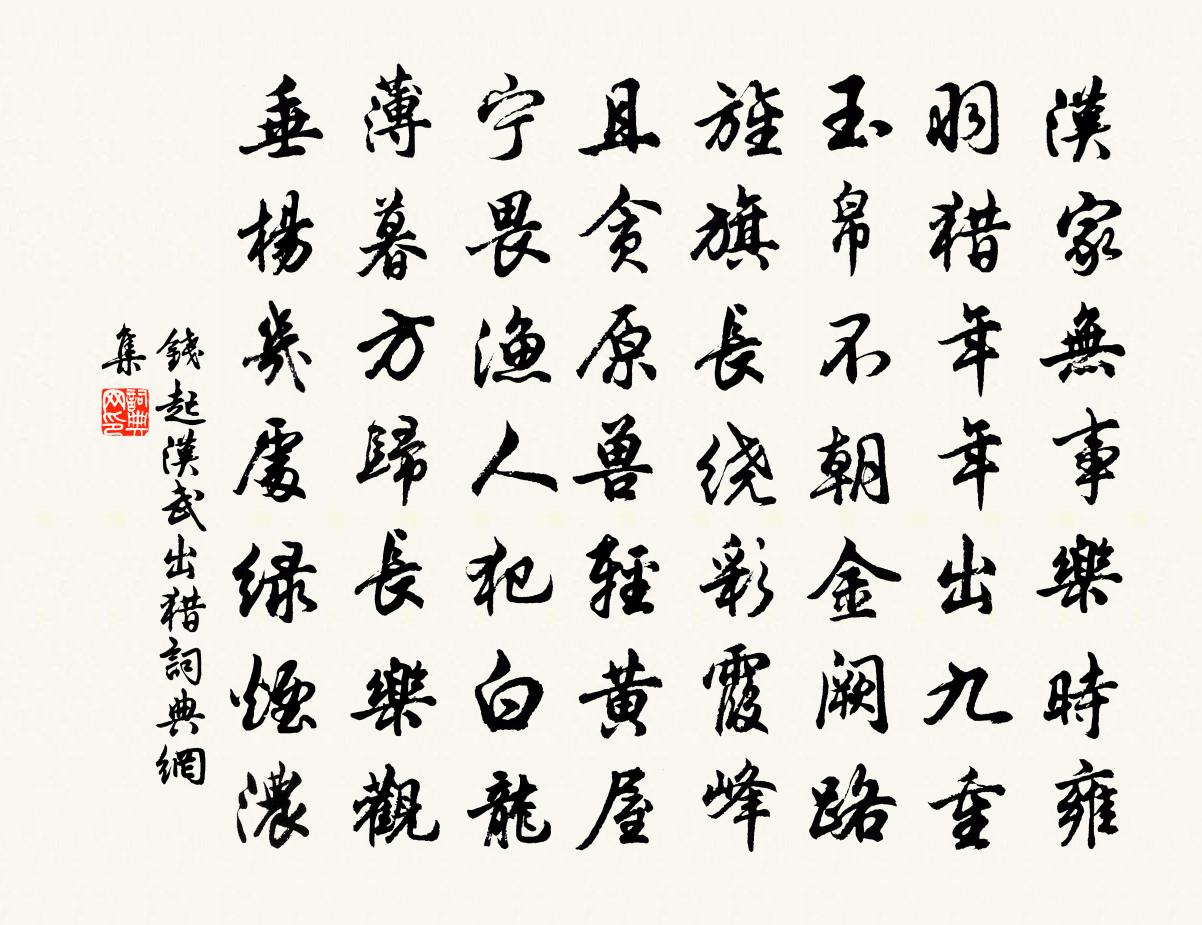 漢家無事樂時雍
羽猎年年出九重
玉帛不朝金阙路
旌旗長绕彩霞峰
且贪原兽輕黃屋
宁畏渔人犯白龍
薄暮方歸長樂觀
垂楊幾處绿煙濃
錢起漢武出猎詞典網
集
詞典
网印